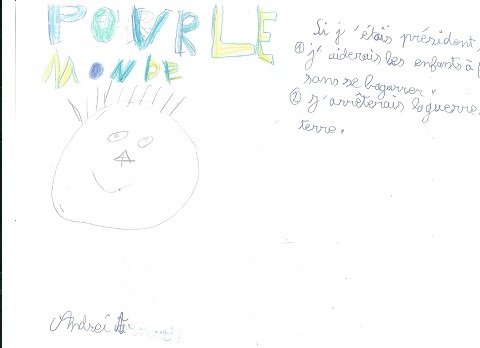 POUR LE
MONDE
Si j'étais président,
① j'aiderais les enfants à
sans se bagarrer.
② j'arrêterais la guerre
terre.
Andreï